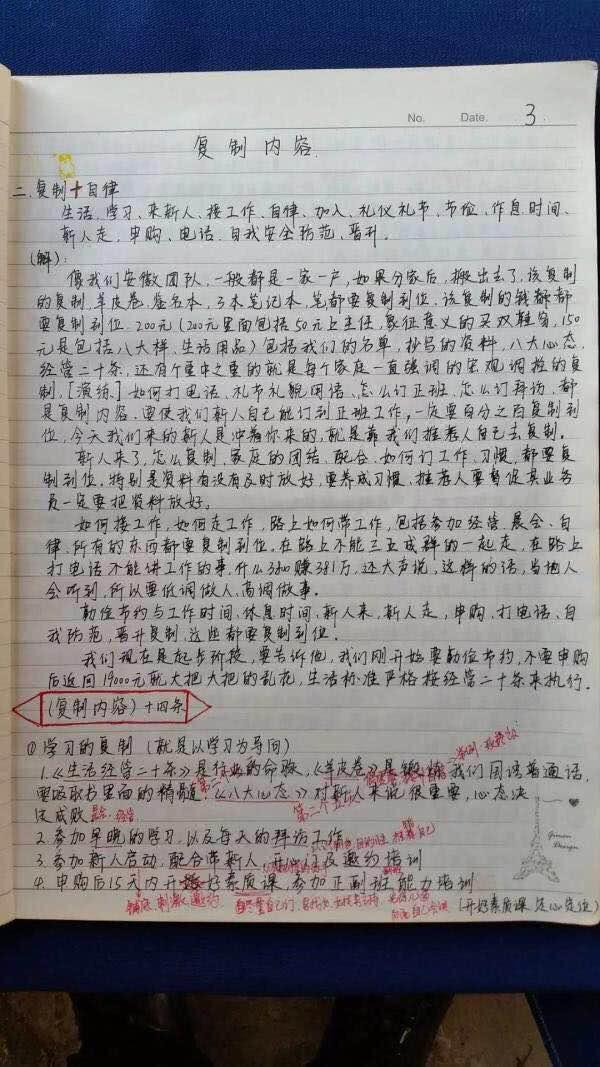 No. Date. 3
复制内容.
二.复制十自律
生活、学习、来新人、接工作、自律、加入、礼仪礼节、节俭、作息时间、
新人走、申购、电话、自我安全防范、晋升.
(解):
像我们安徽团队,一般都是一家一户,如果分家后,搬出去了,该复制
的复制,羊皮卷、签名本、3本笔记本、笔都要复制到位.该复制的钱都都
要复制到位.200元(200元里面包括50元上主任,象征意义的买双鞋穿,150
元是包括八大样、生活用品)包括我们的名单,抄写的资料,八大心态.
经营二十条,还有个重中之重的就是每个家庭一直强调的宏观调控的复
制.[演练]如何打电话、礼节礼貌用语、怎么订正班、怎么订拜访、都
是复制内容.要使我们新人自己能订到正班工作,一定要百分之百复制到
位,今天我们来的新人是冲着你来的,就是靠我们推荐人自己去复制.
新人来了,怎么复制、家庭的团结、配合、如何订工作,习惯,都要复
制到位.特别是资料有没有及时放好,要养成习惯、推荐人要督促其业务
员一定要把资料放好.
如何接工作,如何走工作,路上如何带工作,包括参加经营、晨会、自
律、所有的东西都要复制到位.在路上不能三五成群的一起走,在路上
打电话不能讲工作的事.什么3800赚381万,还大声说,这样的话,当地人
会听到,所以要低调做人、高调做事.
勤俭节约与工作时间、休息时间、新人来,新人走,申购、打电话、自
我防范,晋升复制,这些都要复制到位.
我们现在是起步阶段,要告诉他,我们刚开始要勤俭节约,不要申购
后返回19000元就大把大把的乱花,生活标准严格按经营二十条来执行.
(复制内容)十四条
①学习的复制(就是以学习为导向)
1.《生活经营二十条》是行业的命脉,《羊皮卷》是锻炼我们用读普通话,
要吸取书里面的精髓!《八大心态》对新人来说很重要,心态决
定成败
2.参加早晚的学习,以及每天的拜访工作
3.参加新人启动,配合带新人 及邀约培训
4.申购后15天内开好素质课,参加正副班能力培训
铺底、刺激、邀约
(开好素质课 定心定位)